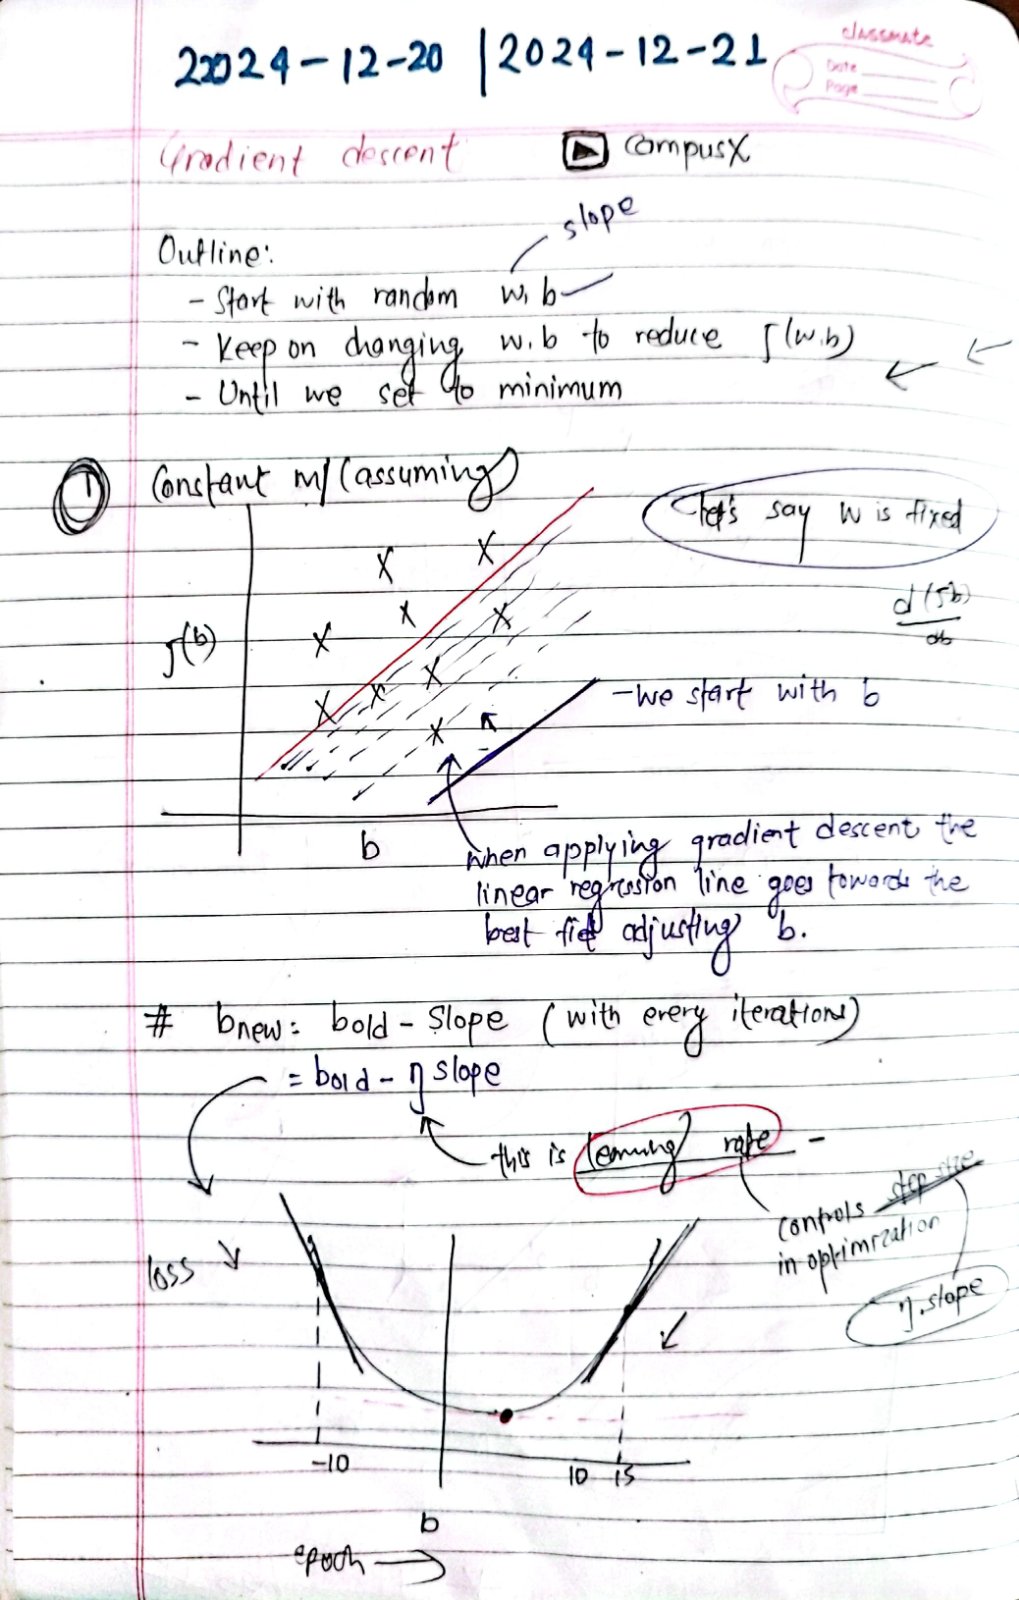 2024-12-20 | 2024-12-21
classmate
Date
Page
Gradient descent
CampusX
slope
Outline:
- Start with random w, b
- Keep on changing w.b to reduce J(w.b)
- Until we set to minimum
1 Constant m/(assuming)
Let's say w is fixed
J(b)
d(Jb)
db
- we start with b
b
when applying gradient descent the
linear regression line goes towards the
best fiet adjusting b.
# bnew = bold - Slope (with every iterations)
= bold - η slope
this is learning rate -
controls step size
in optimization
η.slope
loss
-10
10
15
b
epoch